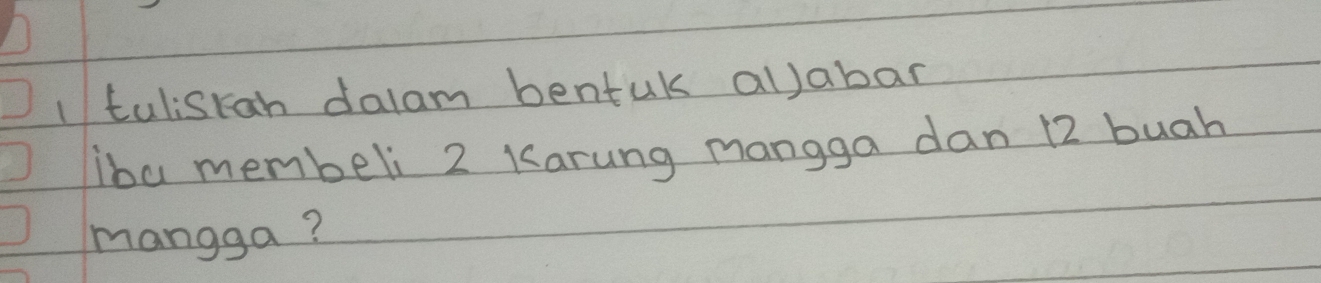 1 tuliskan dalam bentuk aljabar
ibu membeli 2 karung mangga dan 12 buah
mangga?